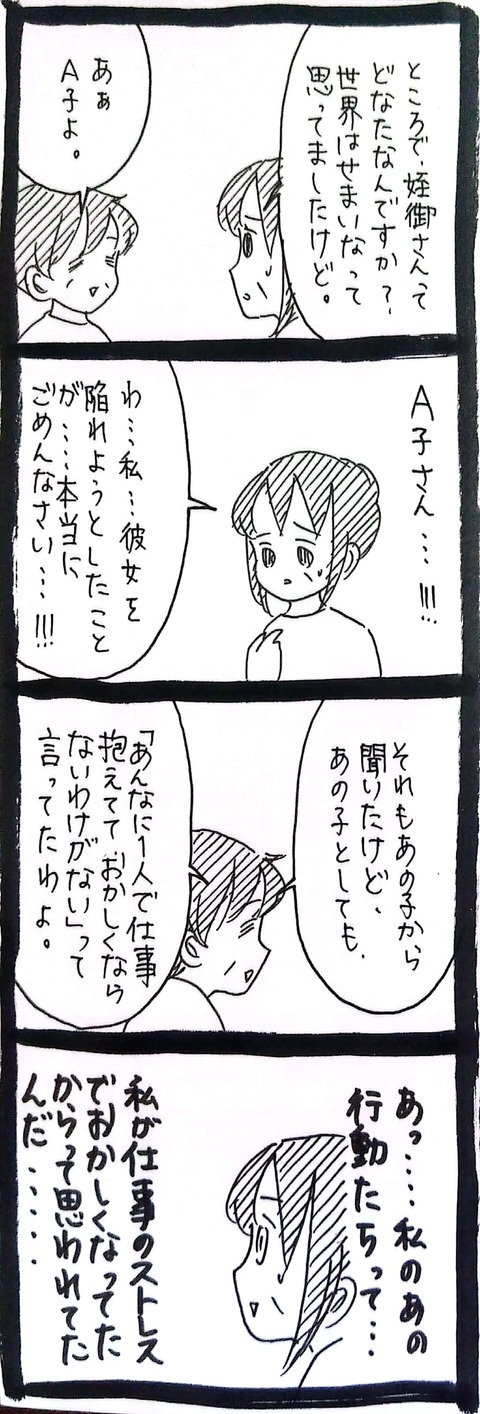 ところで、姪御さんって
どなたなんですか？
世界はせまいなって
思ってましたけど。
あぁ
A子よ。
A子さん…!!!
わ…私…彼女を
陥れようとしたこと
が……本当に
ごめんなさい…!!!
それもあの子から
聞いたけど、
あの子としても、
「あんなに1人で仕事
抱えてて、おかしくなら
ないわけがない」って
言ってたわよ。
あっ……私のあの
行動たちって…
私が仕事のストレス
でおかしくなってた
からって思われてた
んだ……